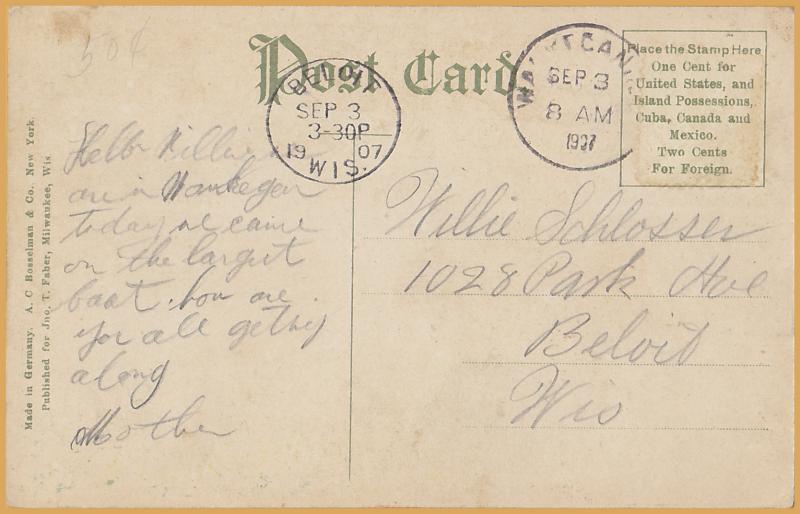 50¢
Post Card
BELOIT
SEP 3
3-30P
19 07
WIS.
WAUKEGAN
SEP 3
8 AM
1907
Place the Stamp Here
One Cent for
United States, and
Island Possessions,
Cuba, Canada and
Mexico.
Two Cents
For Foreign.
Made in Germany. A. C. Bosselman & Co., New York.
Published for Jno. T. Faber, Milwaukee, Wis.
Hello Willie
are in Waukegan
today we came
on the largest
boat. how are
you all getting
along
Mother
Willie Schlosser
1028 Park Ave
Beloit
Wis